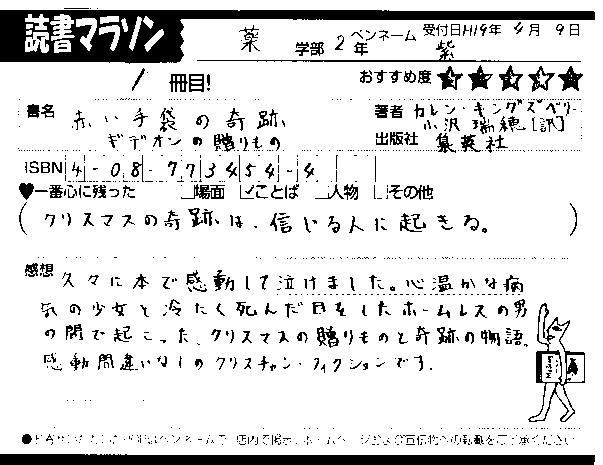 読書マラソン
薬 学部 2年 ペンネーム 紫 受付日H19年 4月 9日
1 冊目!
おすすめ度 ★★★★★
書名 赤い手袋の奇跡
ギデオンの贈りもの
著者 カレン・キングズベリー
小沢瑞穂[訳]
出版社 集英社
ISBN 4-08-773454-4
♥一番心に残った □場面 ☑ことば □人物 □その他
(クリスマスの奇跡は、信じる人に起きる。)
感想 久々に本で感動して泣けました。心温かな病
気の少女と冷たく死んだ目をしたホームレスの男
の間で起こった、クリスマスの贈りものと奇跡の物語。
感動間違いなしのクリスチャン・フィクションです。
ペンネームで 店内で掲示、ホームページおよび宣伝物への転載をご了承ください